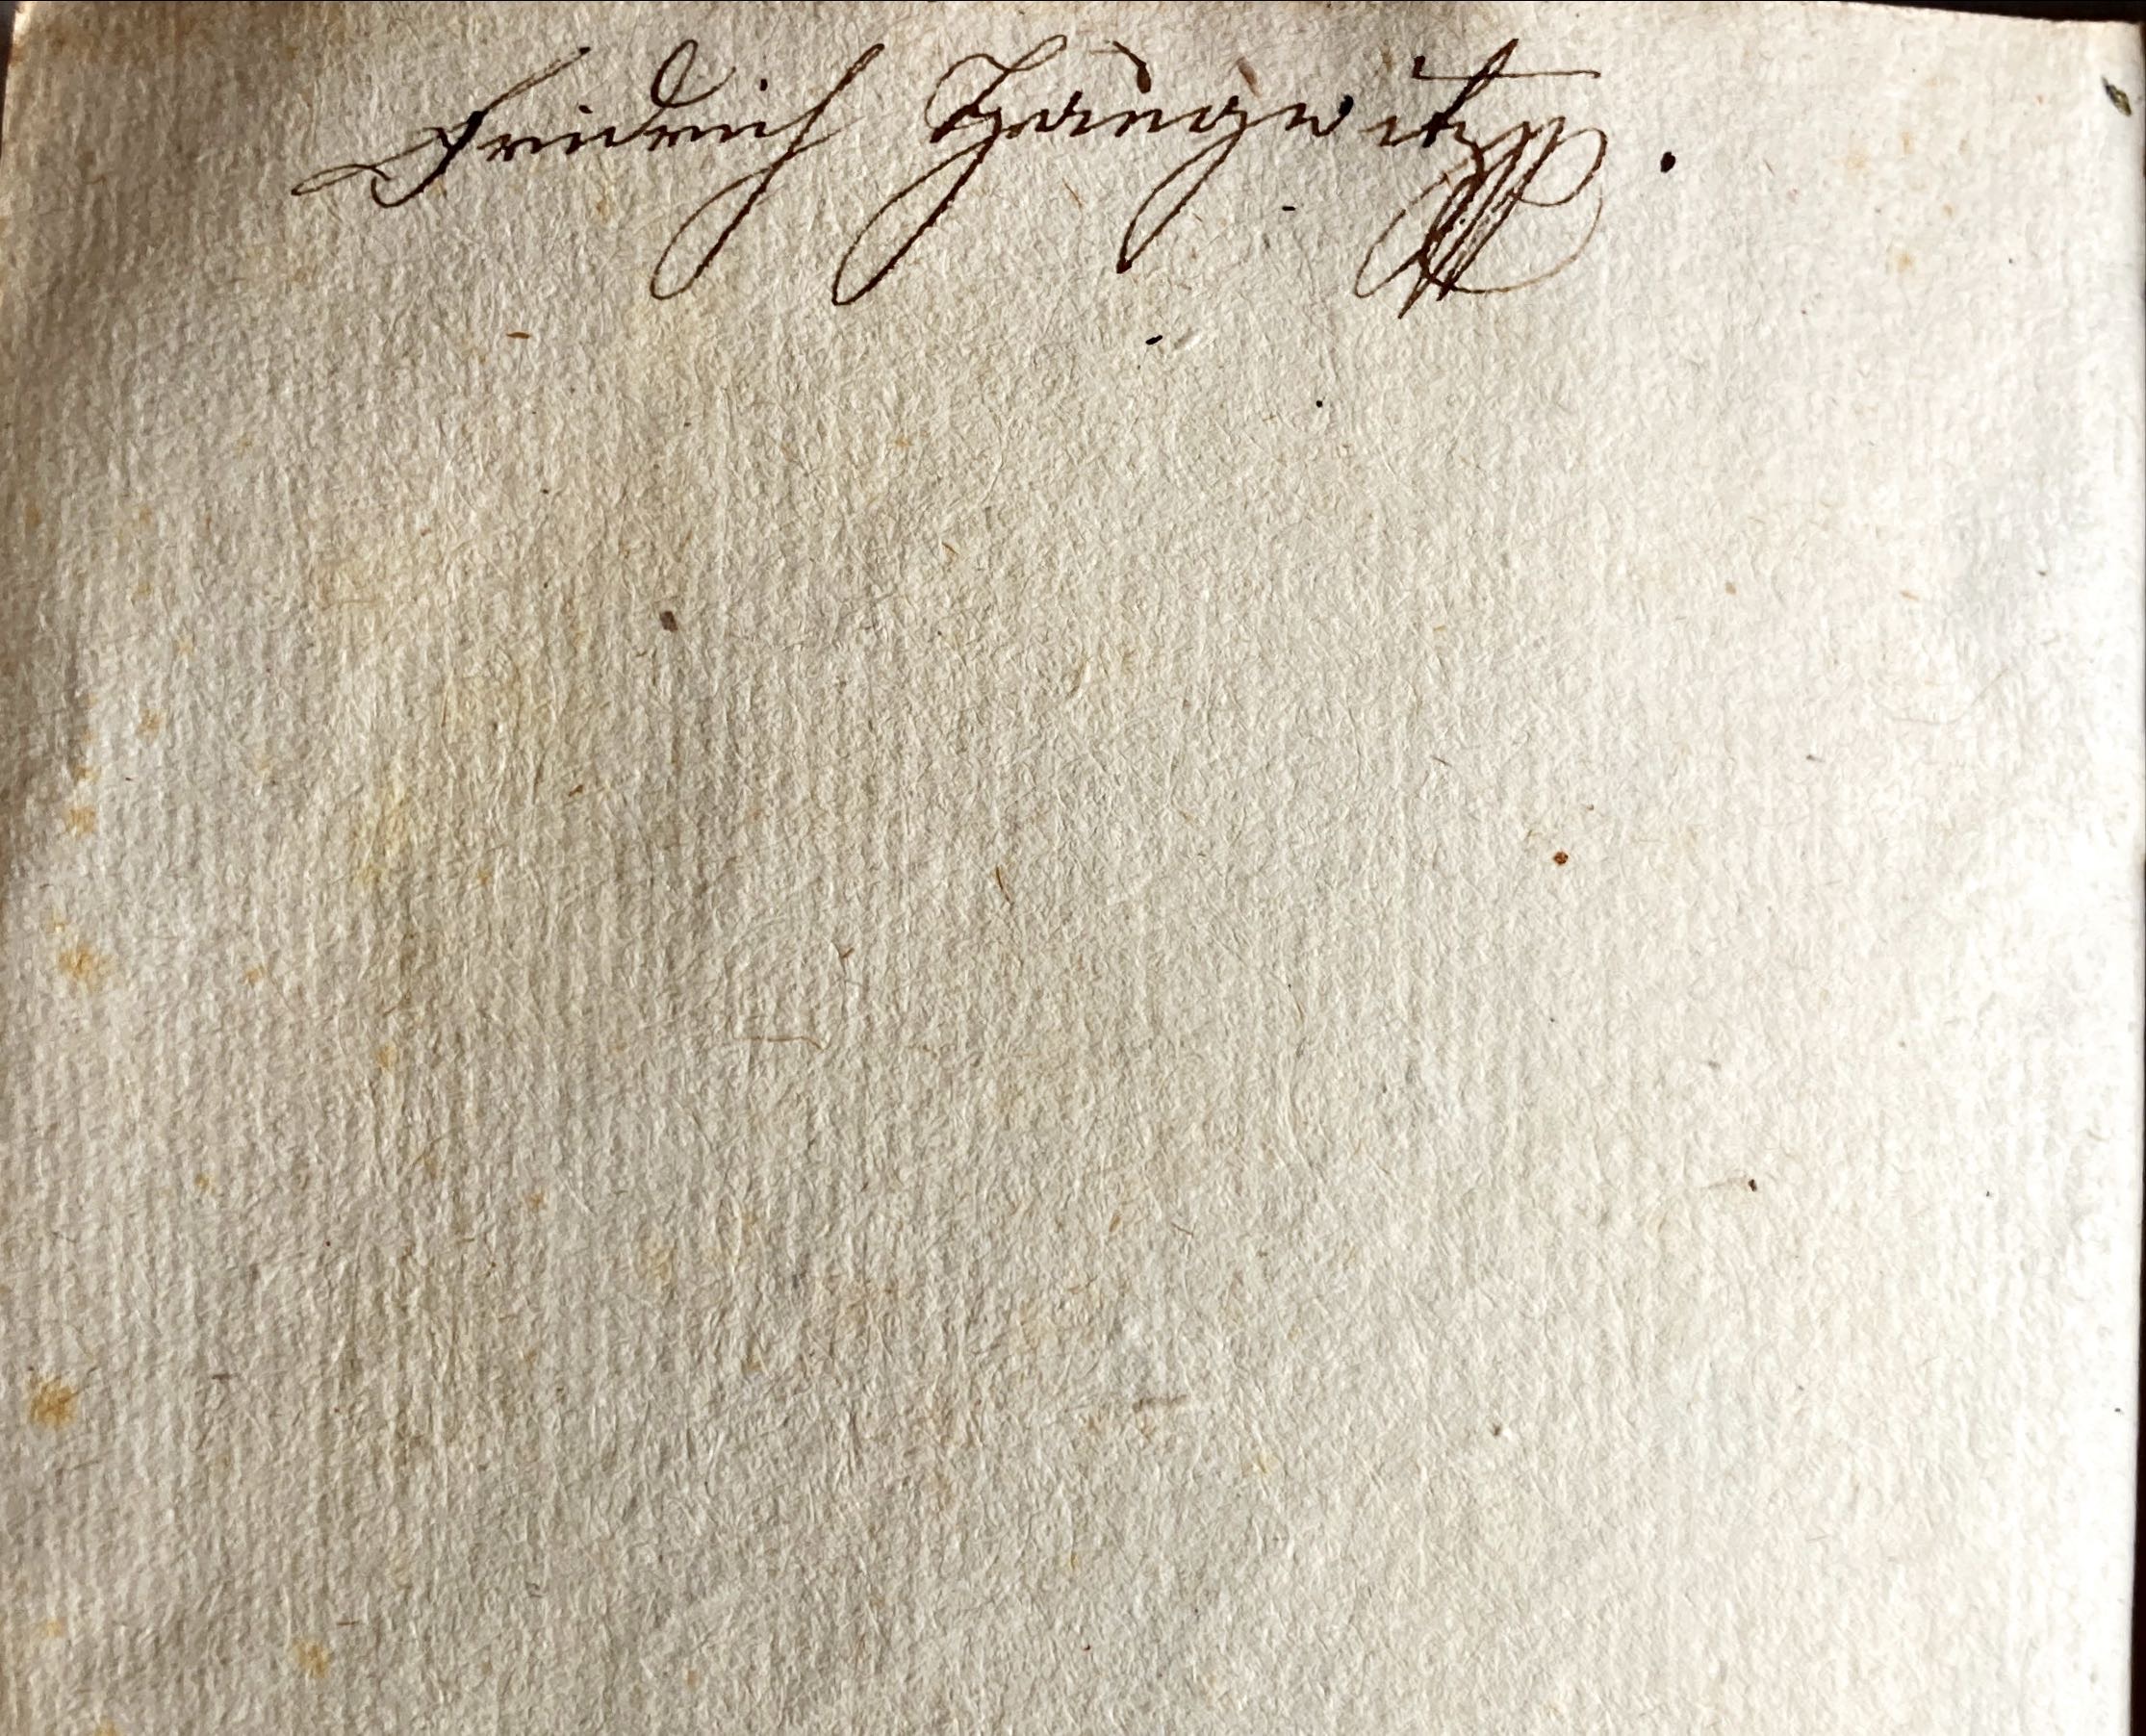 Friedrich Haugwitz.